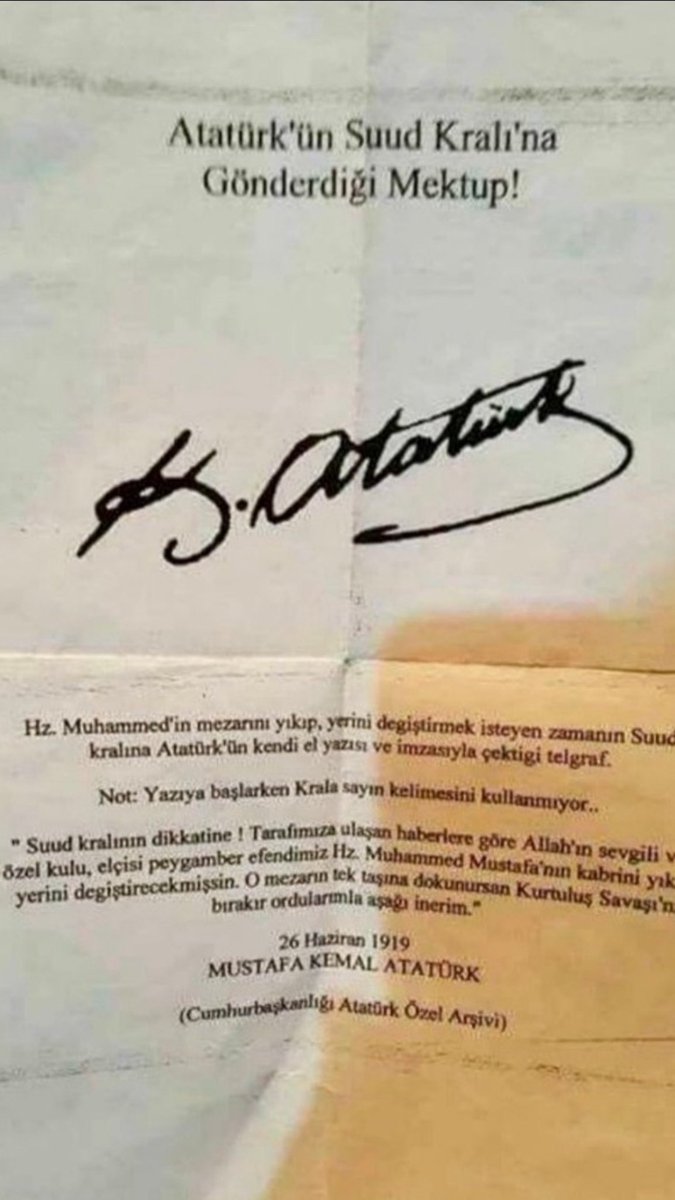 Atatürk'ün Suud Kralı'na
Gönderdiği Mektup!
K. Atatürk
Hz. Muhammed'in mezarını yıkıp, yerini degiştirmek isteyen zamanın Suud
kralına Atatürk'ün kendi el yazısı ve imzasıyla çektigi telgraf.
Not: Yazıya başlarken Krala sayın kelimesini kullanmıyor..
" Suud kralının dikkatine ! Tarafımıza ulaşan haberlere göre Allah'ın sevgili v
özel kulu, elçisi peygamber efendimiz Hz. Muhammed Mustafa'nın kabrini yık
yerini degiştirecekmişsin. O mezarın tek taşına dokunursan Kurtuluş Savaşı'n
bırakır ordularımla aşağı inerim."
26 Haziran 1919
MUSTAFA KEMAL ATATÜRK
(Cumhurbaşkanlığı Atatürk Özel Arşivi)